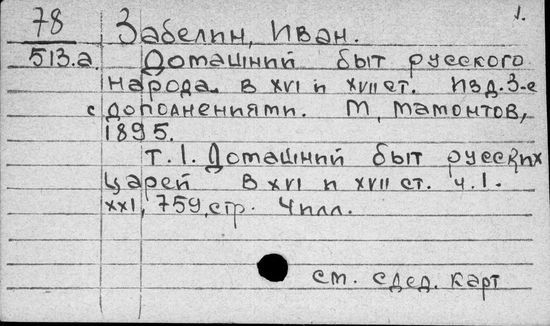 1.
78 Забелин, Иван.
513.а. Домашний быт русского
народа в XVI и XVII ст. Изд. 3-е
с дополнениями. М, Мамонтов,
1895.
т. 1. Домашний быт русских
царей в XVI и XVII ст. ч. 1.
XXI, 759, стр. 4 илл.
см. след. карт